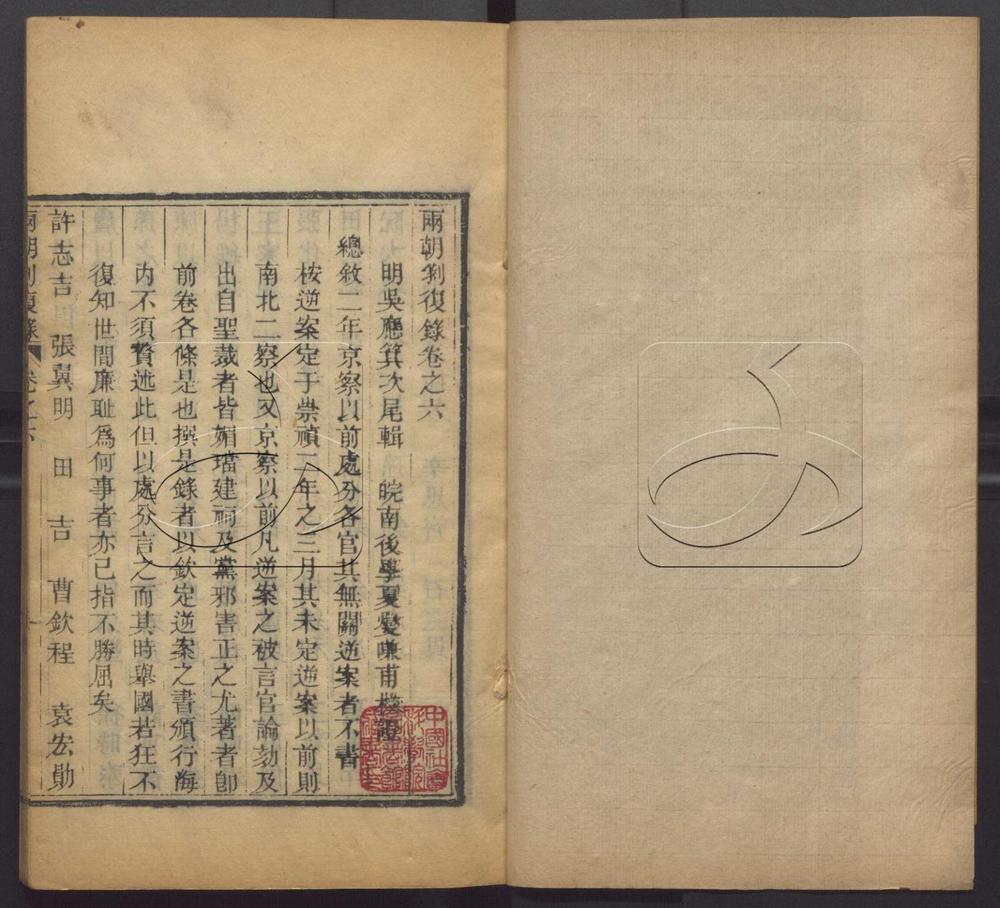 兩朝剝復錄卷之六
明吳應箕次尾輯 皖南後學夏燮嗛甫校證
總敘二年京察以前處分各官其無關逆案者不書
桉逆案定于崇禎二年之三月其未定逆案以前則
南北二察也又京察以前凡逆案之被言官論劾及
出自聖裁者皆媚璫建祠及黨邪害正之尤著者卽
前卷各條是也撰是錄者以欽定逆案之書頒行海
內不須贅述此但以處分言之而其時舉國若狂不
復知世間廉恥爲何事者亦已指不勝屈矣
許志吉 張翼明 田 吉 曹欽程 袁宏勛
兩朝剝復錄 卷之六 一
中國社會科學院